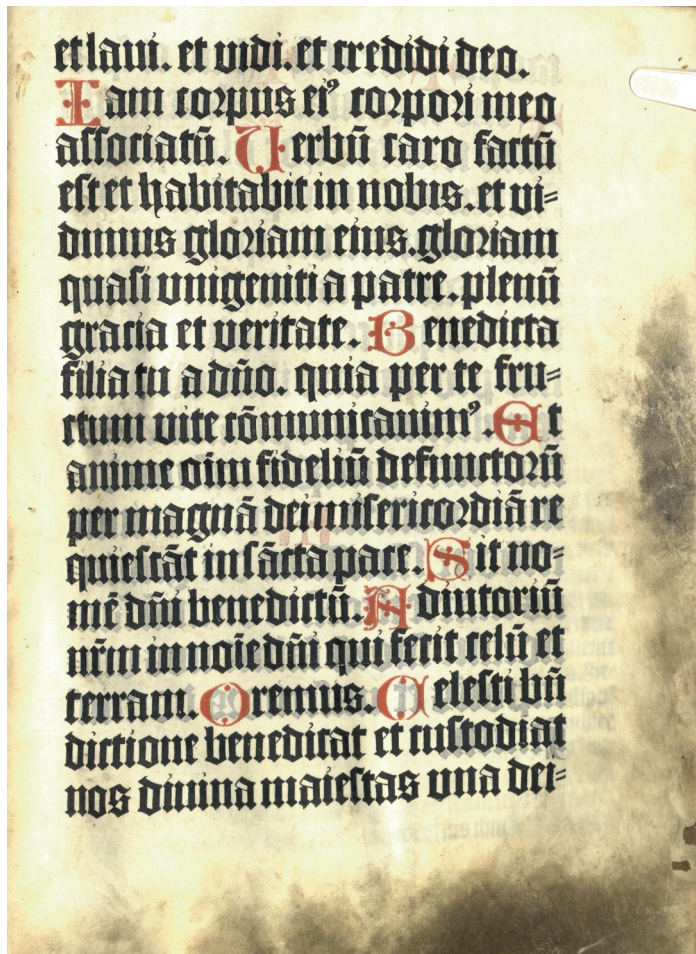 et laui. et vidi. et credidi deo.
Iam corpus eiꝰ corpori meo
associatū. Uerbū caro factū
est et habitabit in nobis. et vi-
dimus gloriam eius. gloriam
quasi vnigeniti a patre. plenū
gracia et veritate. Benedicta
filia tu a dño. quia per te fru-
ctum vite cōmunicauimꝰ. Et
anime oīm fideliū defunctorū
per magnā dei misericordiā re
quiescāt in sācta pace. Sit no-
mē dñi benedictū. Adiutoriū
nr̄m in noīe dñi qui fecit celū et
terram. Oremus. Celesti bñ
dictione benedicat et custodiat
nos diuina maiestas vna dei-